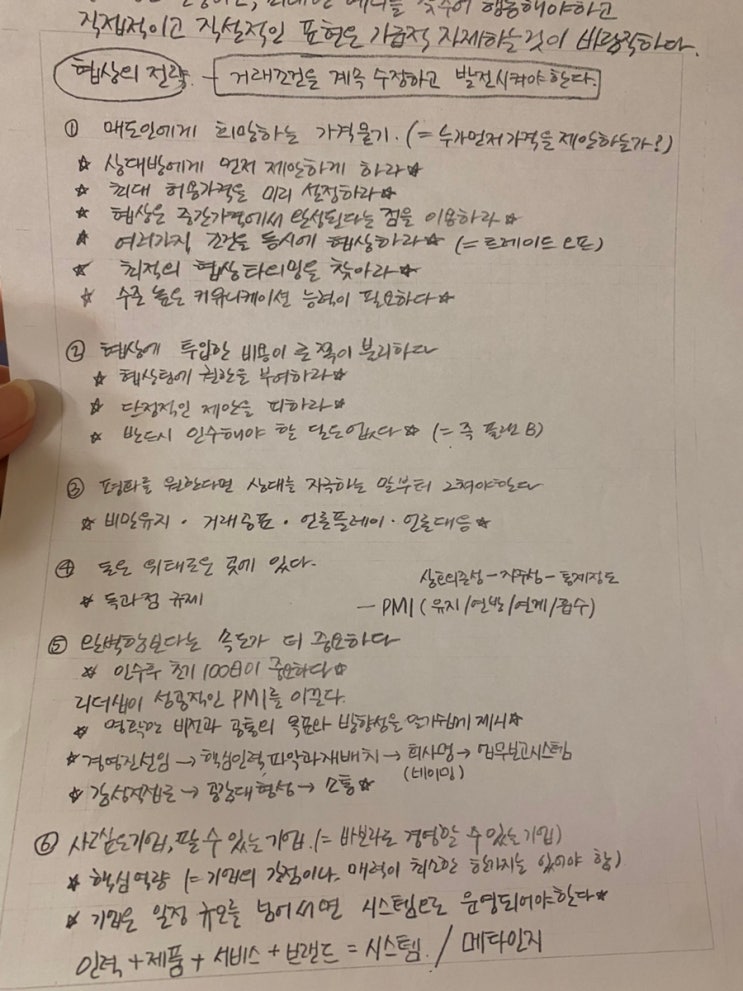 행동해야하고
직접적이고 직설적인 표현은 가급적 자제하는것이 바람직하다.
협상의 전략. - 거래조건을 계속 수정하고 발전시켜야한다.
① 매도인에게 희망하는 가격묻기. (= 누가먼저 가격을 제안하는가?)
☆ 상대방에게 먼저 제안하게 하라☆
☆ 최대 허용가격을 미리 설정하라☆
☆ 협상은 중간가격에서 완성된다는 점을 이용하라☆
☆ 여러가지 조건을 동시에 협상하라☆ (= 트레이드 오프)
☆ 최적의 협상타이밍을 찾아라☆
☆ 수준 높은 커뮤니케이션 능력이 필요하다☆
② 협상에 투입한 비용이 큰 쪽이 불리하다
☆ 협상팀에 권한을 부여하라☆
☆ 단정적인 제안을 피하라☆
☆ 반드시 인수해야 할 딜은없다☆ (= 즉 플랜 B)
③ 평화를 원한다면 상대를 자극하는 말부터 고쳐야한다
☆ 비밀유지 · 거래공표 · 언론플레이 · 언론대응☆
④ 돈은 위태로운 곳에 있다.
☆ 독과점 규제
상호의존성 - 자주성 - 통제정도
- PMI (유지/연방/연계/흡수)
⑤ 완벽함보다는 속도가 더 중요하다
☆ 인수후 초기 100일이 중요하다☆
리더쉽이 성공적인 PMI를 이끈다.
☆ 명확한 비전과 공통의 목표와 방향성을 알기쉽게 제시☆
☆경영진선임 → 핵심인력 파악과재배치 → 회사명 → 업무보고시스템
(네이밍)
☆ 감성적접근 → 공감대 형성 → 소통☆
⑥ 사고싶은기업, 팔 수 있는 기업. (= 바보라도 경영할 수 있는 기업)
☆ 핵심역량 (= 기업의 강점이나 매력이 최소한 한가지는 있어야 함)
☆ 기업은 일정 규모를 넘어서면 시스템으로 운영되어야한다☆
인력 + 제품 + 서비스 + 브랜드 = 시스템. / 메타인지